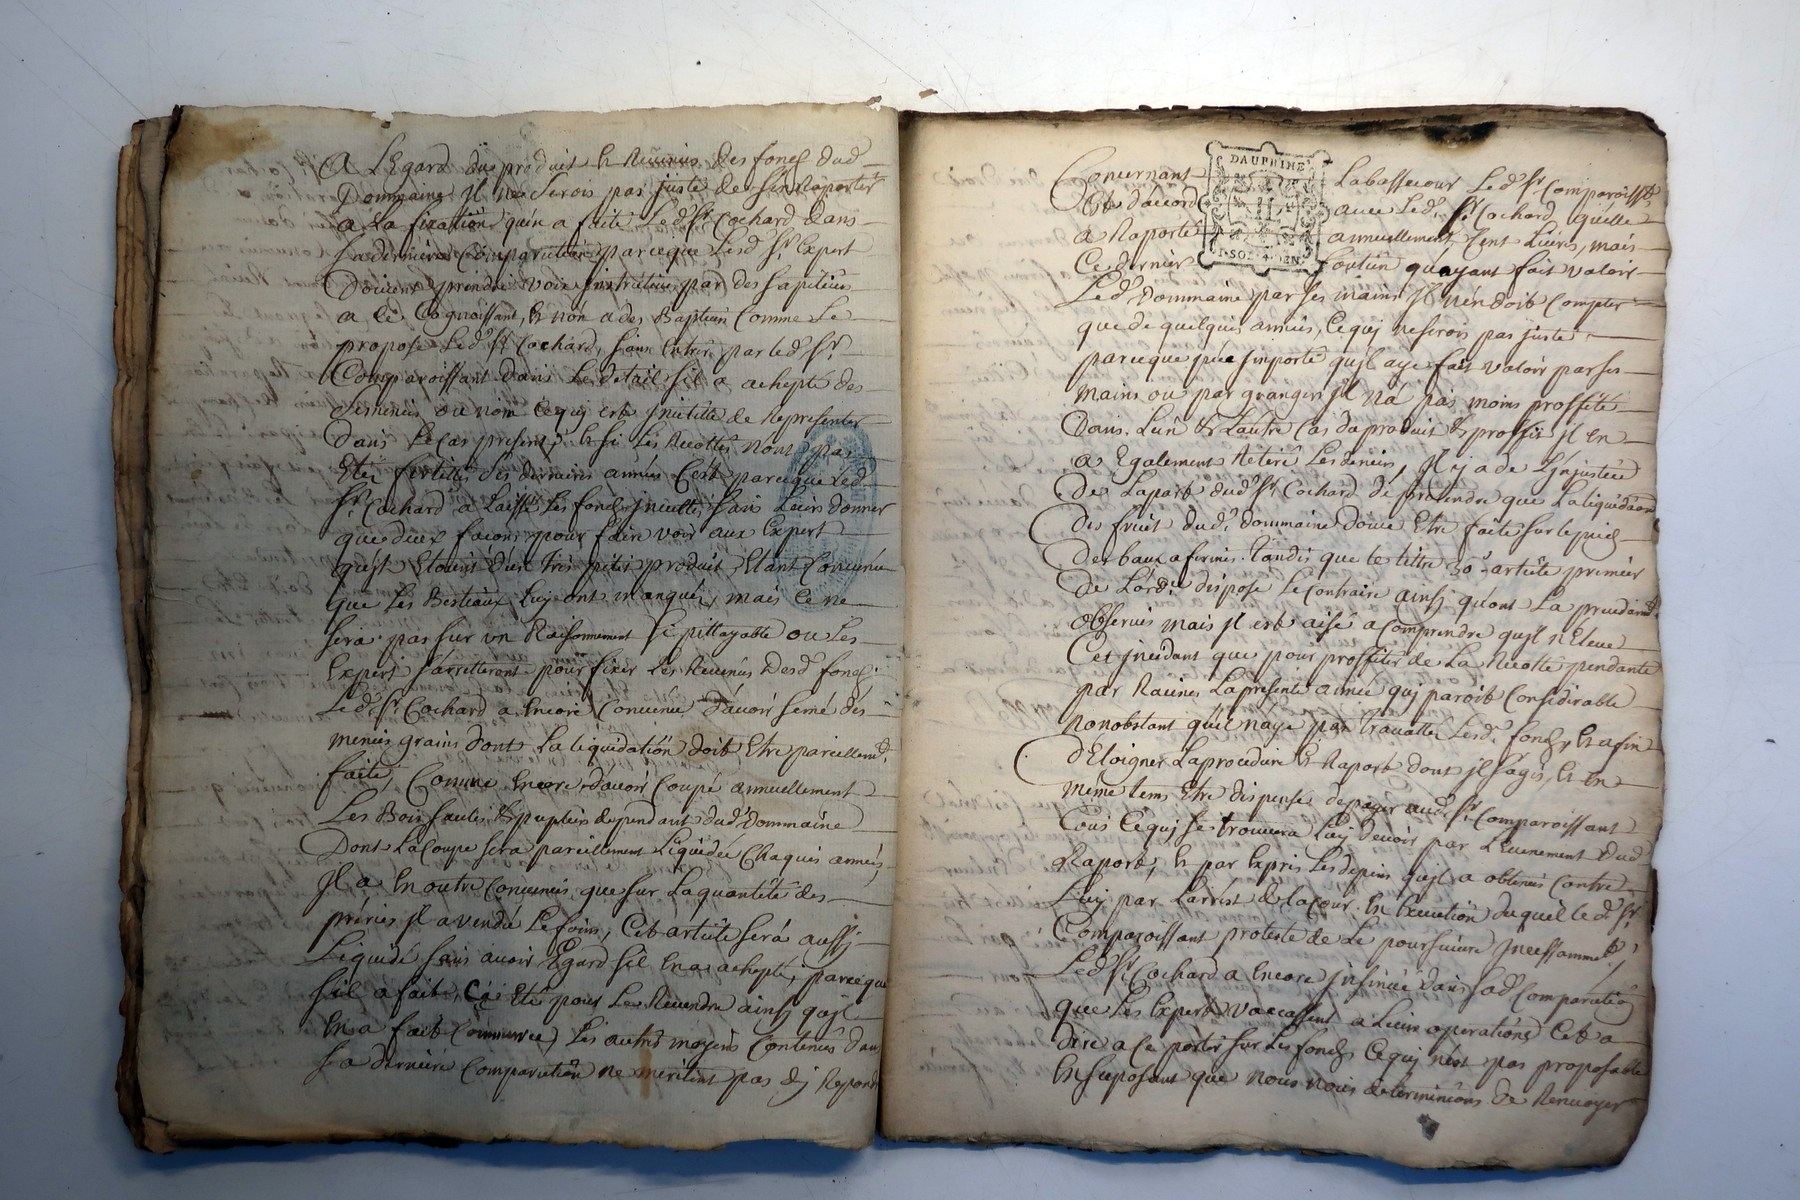 A L'Egard du produit & Revenus des fonds dud
Dommaine Il ne serois pas juste de s'en Raporter
a La fixation qu'en a faite Led Sr Cochard dans
sa derniere Comparution parceque Lesd Srs Expert
Doivent prendre voie instructive par des sapiteurs
a ce Cognoissant, & non a des Baptiers Comme Le
propose Led Sr Cochard, sans Entrer par led Sr
Comparoissant dans Le detail s'il a achepté des
semences ou non Cequj est jnutille de Representer
Dans Le Cas present, & si Les Recottes n'ont pas
Eté fertilles des dernieres années C'est parceque Led
Sr Cochard a Laissé Les fonds jncultes sans Leurs donner
que deux facons pour faire voir aux Expert
qu'jls Etoients d'un Très petit produit, Etant Convenu
que Les Bestiaux Luy ont manqués, mais Ce ne
sera pas sur un Raisonnement si pittoyable ou Les
Expert s'arretteront pour fixer Les Revenus Desd fonds
Led Sr Cochard a Encore Convenu d'avoir semé des
menus grains dont La liquidation doit Etre pareillemt
faite, Comme Encore d'avoir Coupé annuellement
Les Bois saules & pupliers dependant dud Dommaine
Dont La Coupe sera pareillement Liquidée Chaques années,
Jl a En outre Convenus que sur La quantité des
préries jl a vendu Le foins, Cet article sera aussj
Liquidé sans avoir Egard s'il En a achepté, parceque
s'il a fait, C'a Eté pour Le Revendre ainsj qu'jl
En a fait Commerce, Les autres moyens Contenus dans
sa derniere Comparution ne meritent pas d'j Repondre
DAUPHINE
Concernant La basse cour Led Sr Comparoisst
Est d'accord avec Led Sr Cochard qu'elle
a Raporté annuellement Cent Livres, mais
Ce dernier soutien qu'ayant fait valoir
Led Dommaine par ses mains jl n'en doit Compter
que de quelques années, Cequj ne serois pas juste
parceque peu jmporte qu'jl aye fait valoir par ses
mains ou par grangers jl n'a pas moins proffité
Dans L'un & L'autre Cas du produit & proffit jl En
a Egalement Retiré Les deniers, Jl y a de L'jnjustice
De La part dud Sr Cochard de pretendre que La liquidation
Des fruit dud Dommaine doive Etre faite sur le pied
Des baux a fermes tandis que le tittre 30e article premier
De L'ordce dispose Le Contraire ainsj qu'ont La precedamt
observés mais jl est aisé a Comprendre qu'jl n'Eleve
Cet jncidant que pour proffiter de La Recotte pendante
par Racines La presente année quj paroit Considerable
nonobstant qu'il n'aye pas travaillé Lesd fonds & afin
D'Eloigner La procedure & Raport dont jl s'agis, & En
même tems Etre dispensé de payer aud Sr Comparoissant
tous Cequj se trouvera Luj devoir par L'evenement dud
Raport, & par Expres Les depens qu'jl a obtenus Contre
Luj par L'arrest de La Cour En Execution duquel le d Sr
Comparoissant proteste de Le poursuivre jncessammt
Led Sr Cochard a Encore jnsinué dans sad Comparution
que Les Expert vaccassent a Leurs operations C'est a
dire a Ce porter sur Les fonds Cequj n'est pas proposable
En suposant que nous nous determinions de Renvoyer